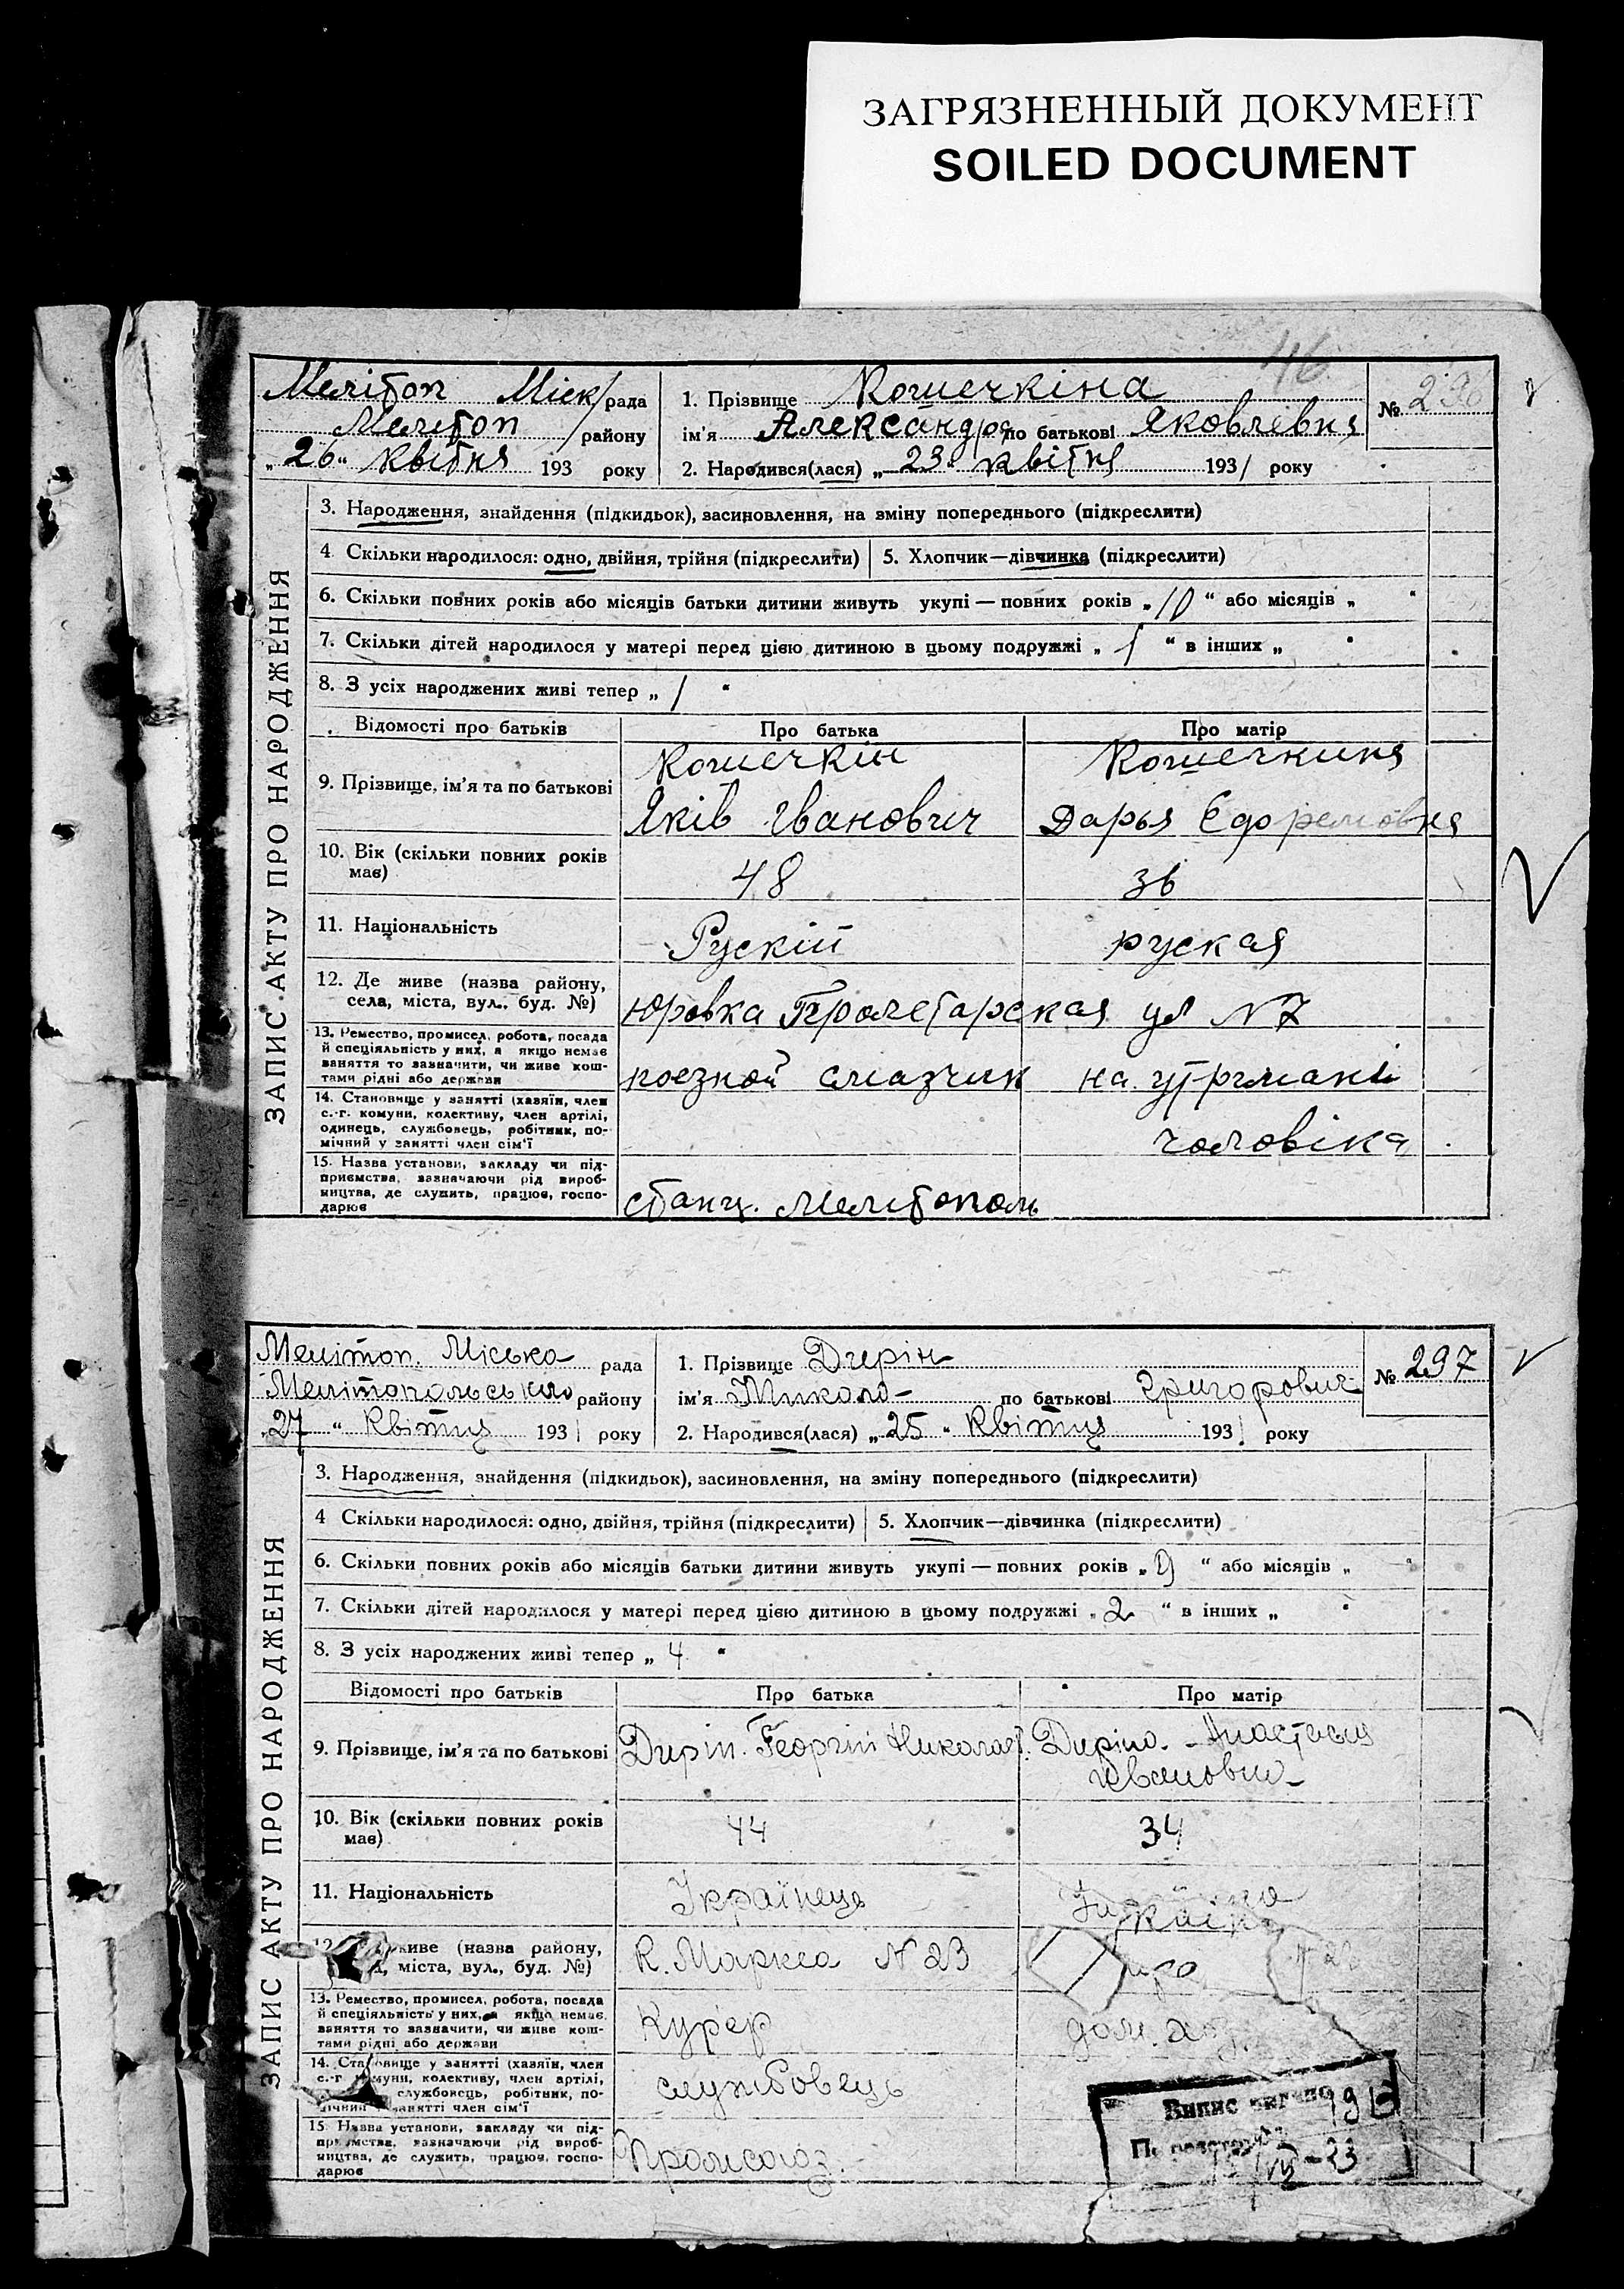 ЗАГРЯЗНЕННЫЙ ДОКУМЕНТ
SOILED DOCUMENT
46
Меліტоп Міск/рада
Меліт оп / району
„26“ квітня 193 року
1. Прізвище Кошечкіна
ім'я Александра по батькові Яковлевня
2. Народився(лася) „23“ квітня 1931 року
№ 296
ЗАПИС АКТУ ПРО НАРОДЖЕННЯ
3. Народження, знайдення (підкидьок), засиновлення, на зміну попереднього (підкреслити)
4 Скільки народилося: одно, двійня, трійня (підкреслити) 5. Хлопчик—дівчинка (підкреслити)
6. Скільки повних років або місяців батьки дитини живуть укупі — повних років „10“ або місяців „ “
7. Скільки дітей народилося у матері перед цією дитиною в цьому подружжі „1“ в інших „ “
8. З усіх народжених живі тепер „1“
Відомості про батьків Про батька Про матір
9. Прізвище, ім'я та по батькові
Кошечкін Яків Іванович
Кошечкиня Дарья
10. Вік (скільки повних років має) 48 36
11. Національність Рускій руская
12. Де живе (назва району, села, міста, вул., буд. №)
Юровка Пролетарская ул N 7
13. Ремество, промисел, робота, посада
й спеціяльність у них, а якщо немає
заняття то зазначити, чи живе кош-
тами рідні або держави
поезной смазчик на утрімані
чоловіка
14. Становище у занятті (хазяїн, член
с.-г. комуни, колективу, член артілі,
одинець, службовець, робітник, по-
мічний у занятті член сім'ї
15. Назва установи, закладу чи під-
приємства, зазначаючи рід вироб-
ництва, де служить, працює, госпо-
дарює
станц. Мелитополь
Мелітоп. Міська рада
Мелітопольського району
„27“ Квітня 1931 року
1. Прізвище Дирін
ім'я Микола по батькові Григорович
2. Народився(лася) „25“ Квітня 1931 року
№ 297
ЗАПИС АКТУ ПРО НАРОДЖЕННЯ
3. Народження, знайдення (підкидьок), засиновлення, на зміну попереднього (підкреслити)
4 Скільки народилося: одно, двійня, трійня (підкреслити) 5. Хлопчик—дівчинка (підкреслити)
6. Скільки повних років або місяців батьки дитини живуть укупі — повних років „ “ або місяців „ “
7. Скільки дітей народилося у матері перед цією дитиною в цьому подружжі „2“ в інших „ “
8. З усіх народжених живі тепер „4“
Відомості про батьків Про батька Про матір
9. Прізвище, ім'я та по батькові
Дирін Георгій Николаев.
Дирина Анастасія
Івановна
10. Вік (скільки повних років має) 44 34
11. Національність Українець
12. живе (назва району, міста, вул., буд. №)
К. Маркса N 23
13. Ремество, промисел, робота, посада
й спеціяльність у них, а якщо немає
заняття то зазначити, чи живе кош-
тами рідні або держави
Кур'єр дом. хоз.
14. Становище у занятті (хазяїн, член
с.-г комуни, колективу, член артілі,
службовець, робітник, по-
мічний у занятті член сім'ї
службовець
15 Назва установи, закладу чи під-
приємства, зазначаючи рід вироб-
ництва, де служить, працює, госпо-
дарює
Промсоюз.
Випис видано